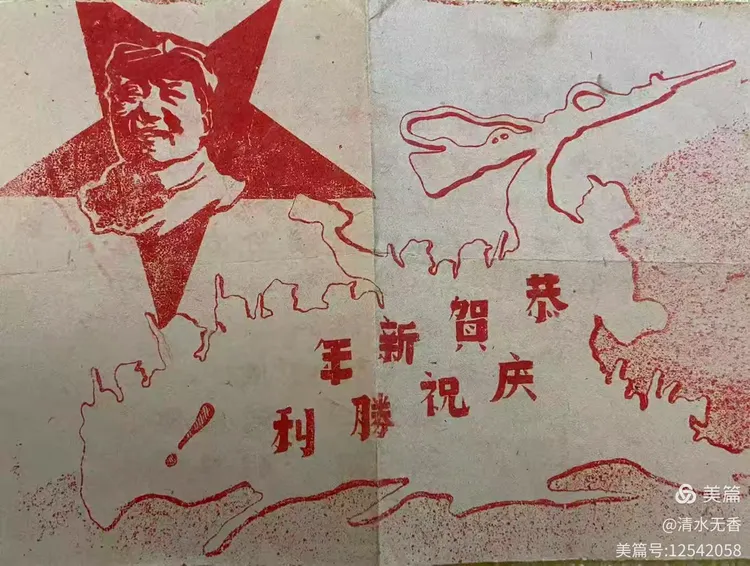 恭賀新年
庆祝勝利!
美篇
@清水无香
美篇号:12542058